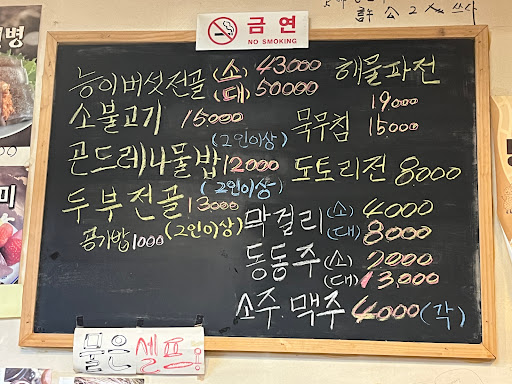 금연
NO SMOKING
능이버섯전골 (소) 43000
(대) 50000
소불고기 15000
(2인이상)
곤드레나물밥 12000
(2인이상)
두부전골 13000
(2인이상)
공기밥 1000
해물파전
19000
묵무침 15000
도토리전 8000
막걸리 (소) 4000
(대) 8000
동동주 (소) 7000
(대) 13,000
소주. 맥주 4000 (각)
물은 셀프